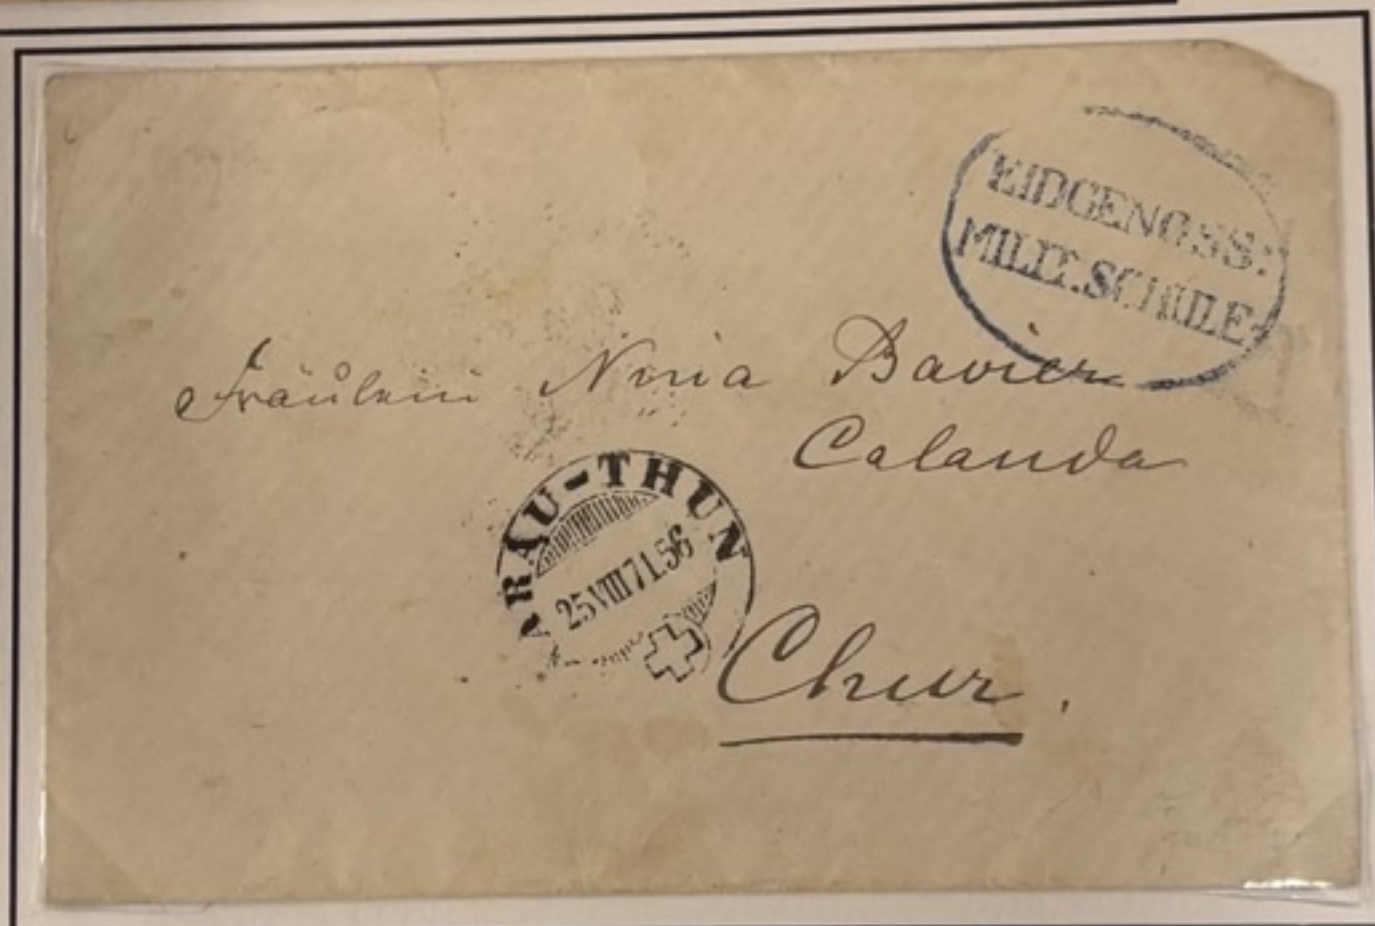 EIDGENOSS:
MILIT.SCHULE
Fräulein Nina Bavier
Calanda
ARAU-THUN
25 VIII 71.56
Chur.